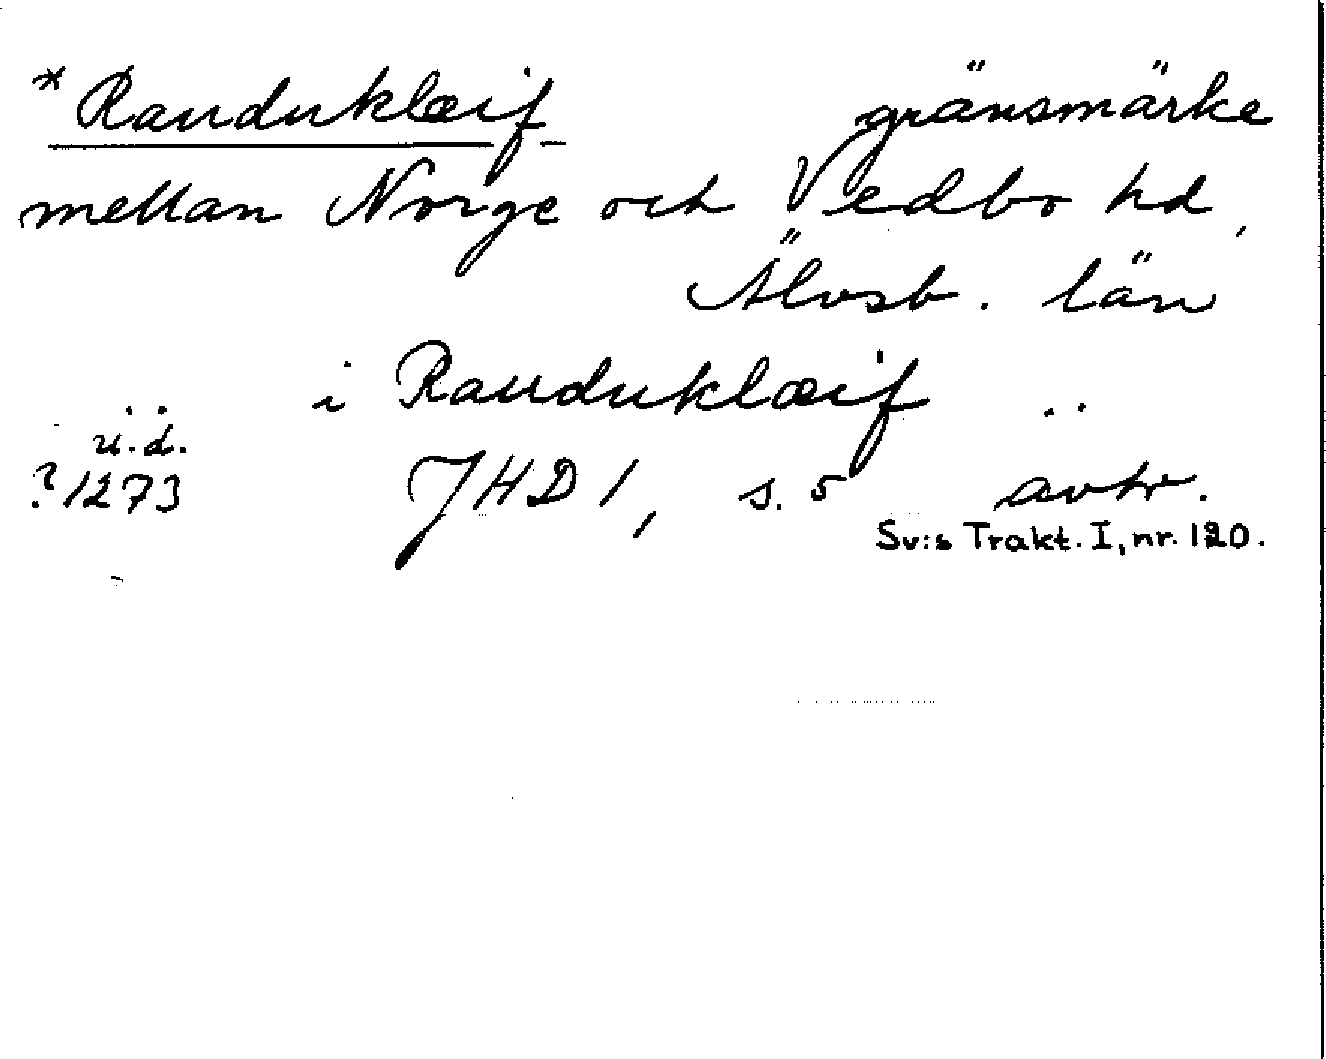 * Rauduklæif gränsmärke
mellan Norge och Vedbo hd,
Älvsb. län
.. i Rauduklæif ..
u.d.
?1273 JHD 1, s. 5 avtr.
Sv:s Trakt. I, nr. 120.